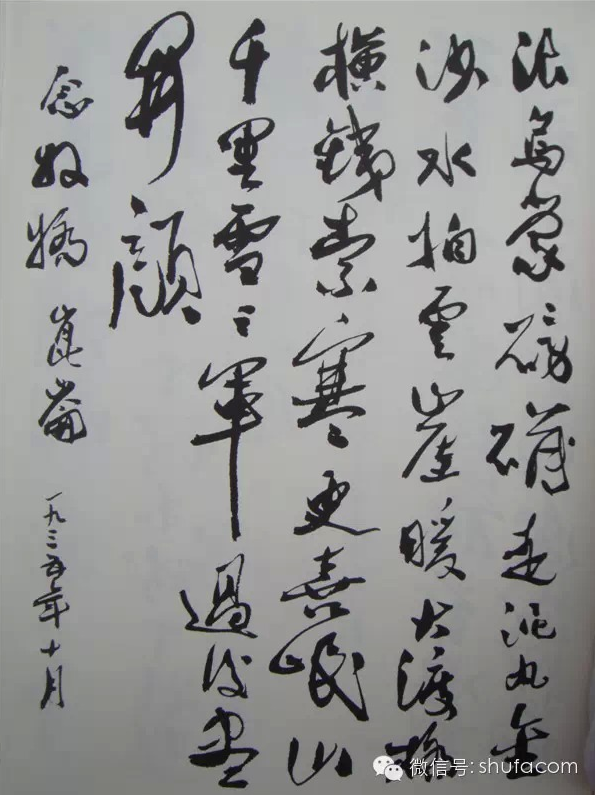 浪乌蒙磅礴走泥丸金
沙水拍云崖暖大渡桥
横铁索寒更喜岷山
千里雪三军过后尽
开颜
念奴娇 崑崙 一九三五年十月
微信号: shufacom